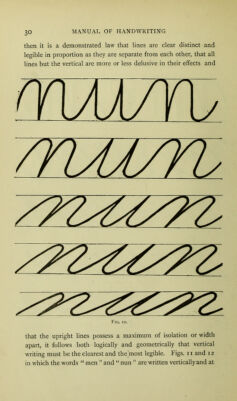 30 MANUAL OF HANDWRITING
then it is a demonstrated law that lines are clear distinct and
legible in proportion as they are separate from each other, that all
lines but the vertical are more or less delusive in their effects and
nun
nun
nun
nun
nun
FIG. 10.
that the upright lines possess a maximum of isolation or width
apart, it follows both logically and geometrically that vertical
writing must be the clearest and the most legible. Figs. 11 and 12
in which the words " men " and " nun " are written vertically and at